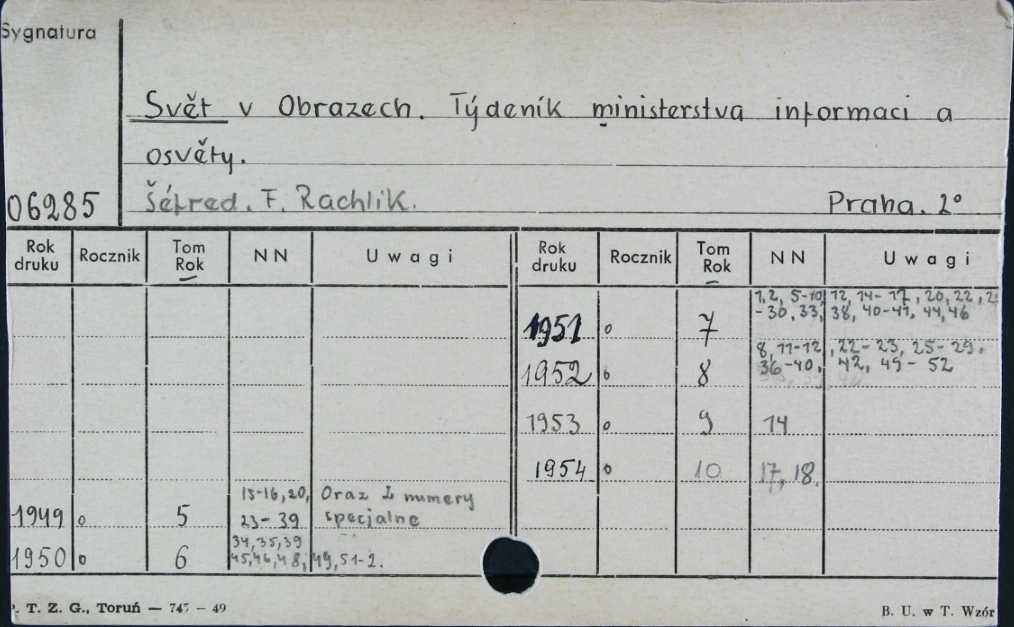 Sygnatura
Svět v Obrazech. Týdeník ministerstva informaci a
osvěty.
06285 Šéfred. F. Rachlík. Praha. 2°
Rok druku Rocznik Tom Rok NN Uwagi Rok druku Rocznik Tom Rok NN Uwagi
1, 2, 5-10, 12, 14-17, 20, 22,
1951 o 7 -30, 33, 38, 40-41, 44, 46
8, 11-12, 22-23, 25-29,
1952 o 8 36-40, 42, 49-52
1953 o 9 14
1954 o 10 17, 18.
13-16, 20, Oraz 2 numery
1949 o 5 23-39 specjalne
34, 35, 39
1950 o 6 45, 46, 48, 49, 51-2.
T. Z. G., Toruń — 747 — 49 B. U. w T. Wzór